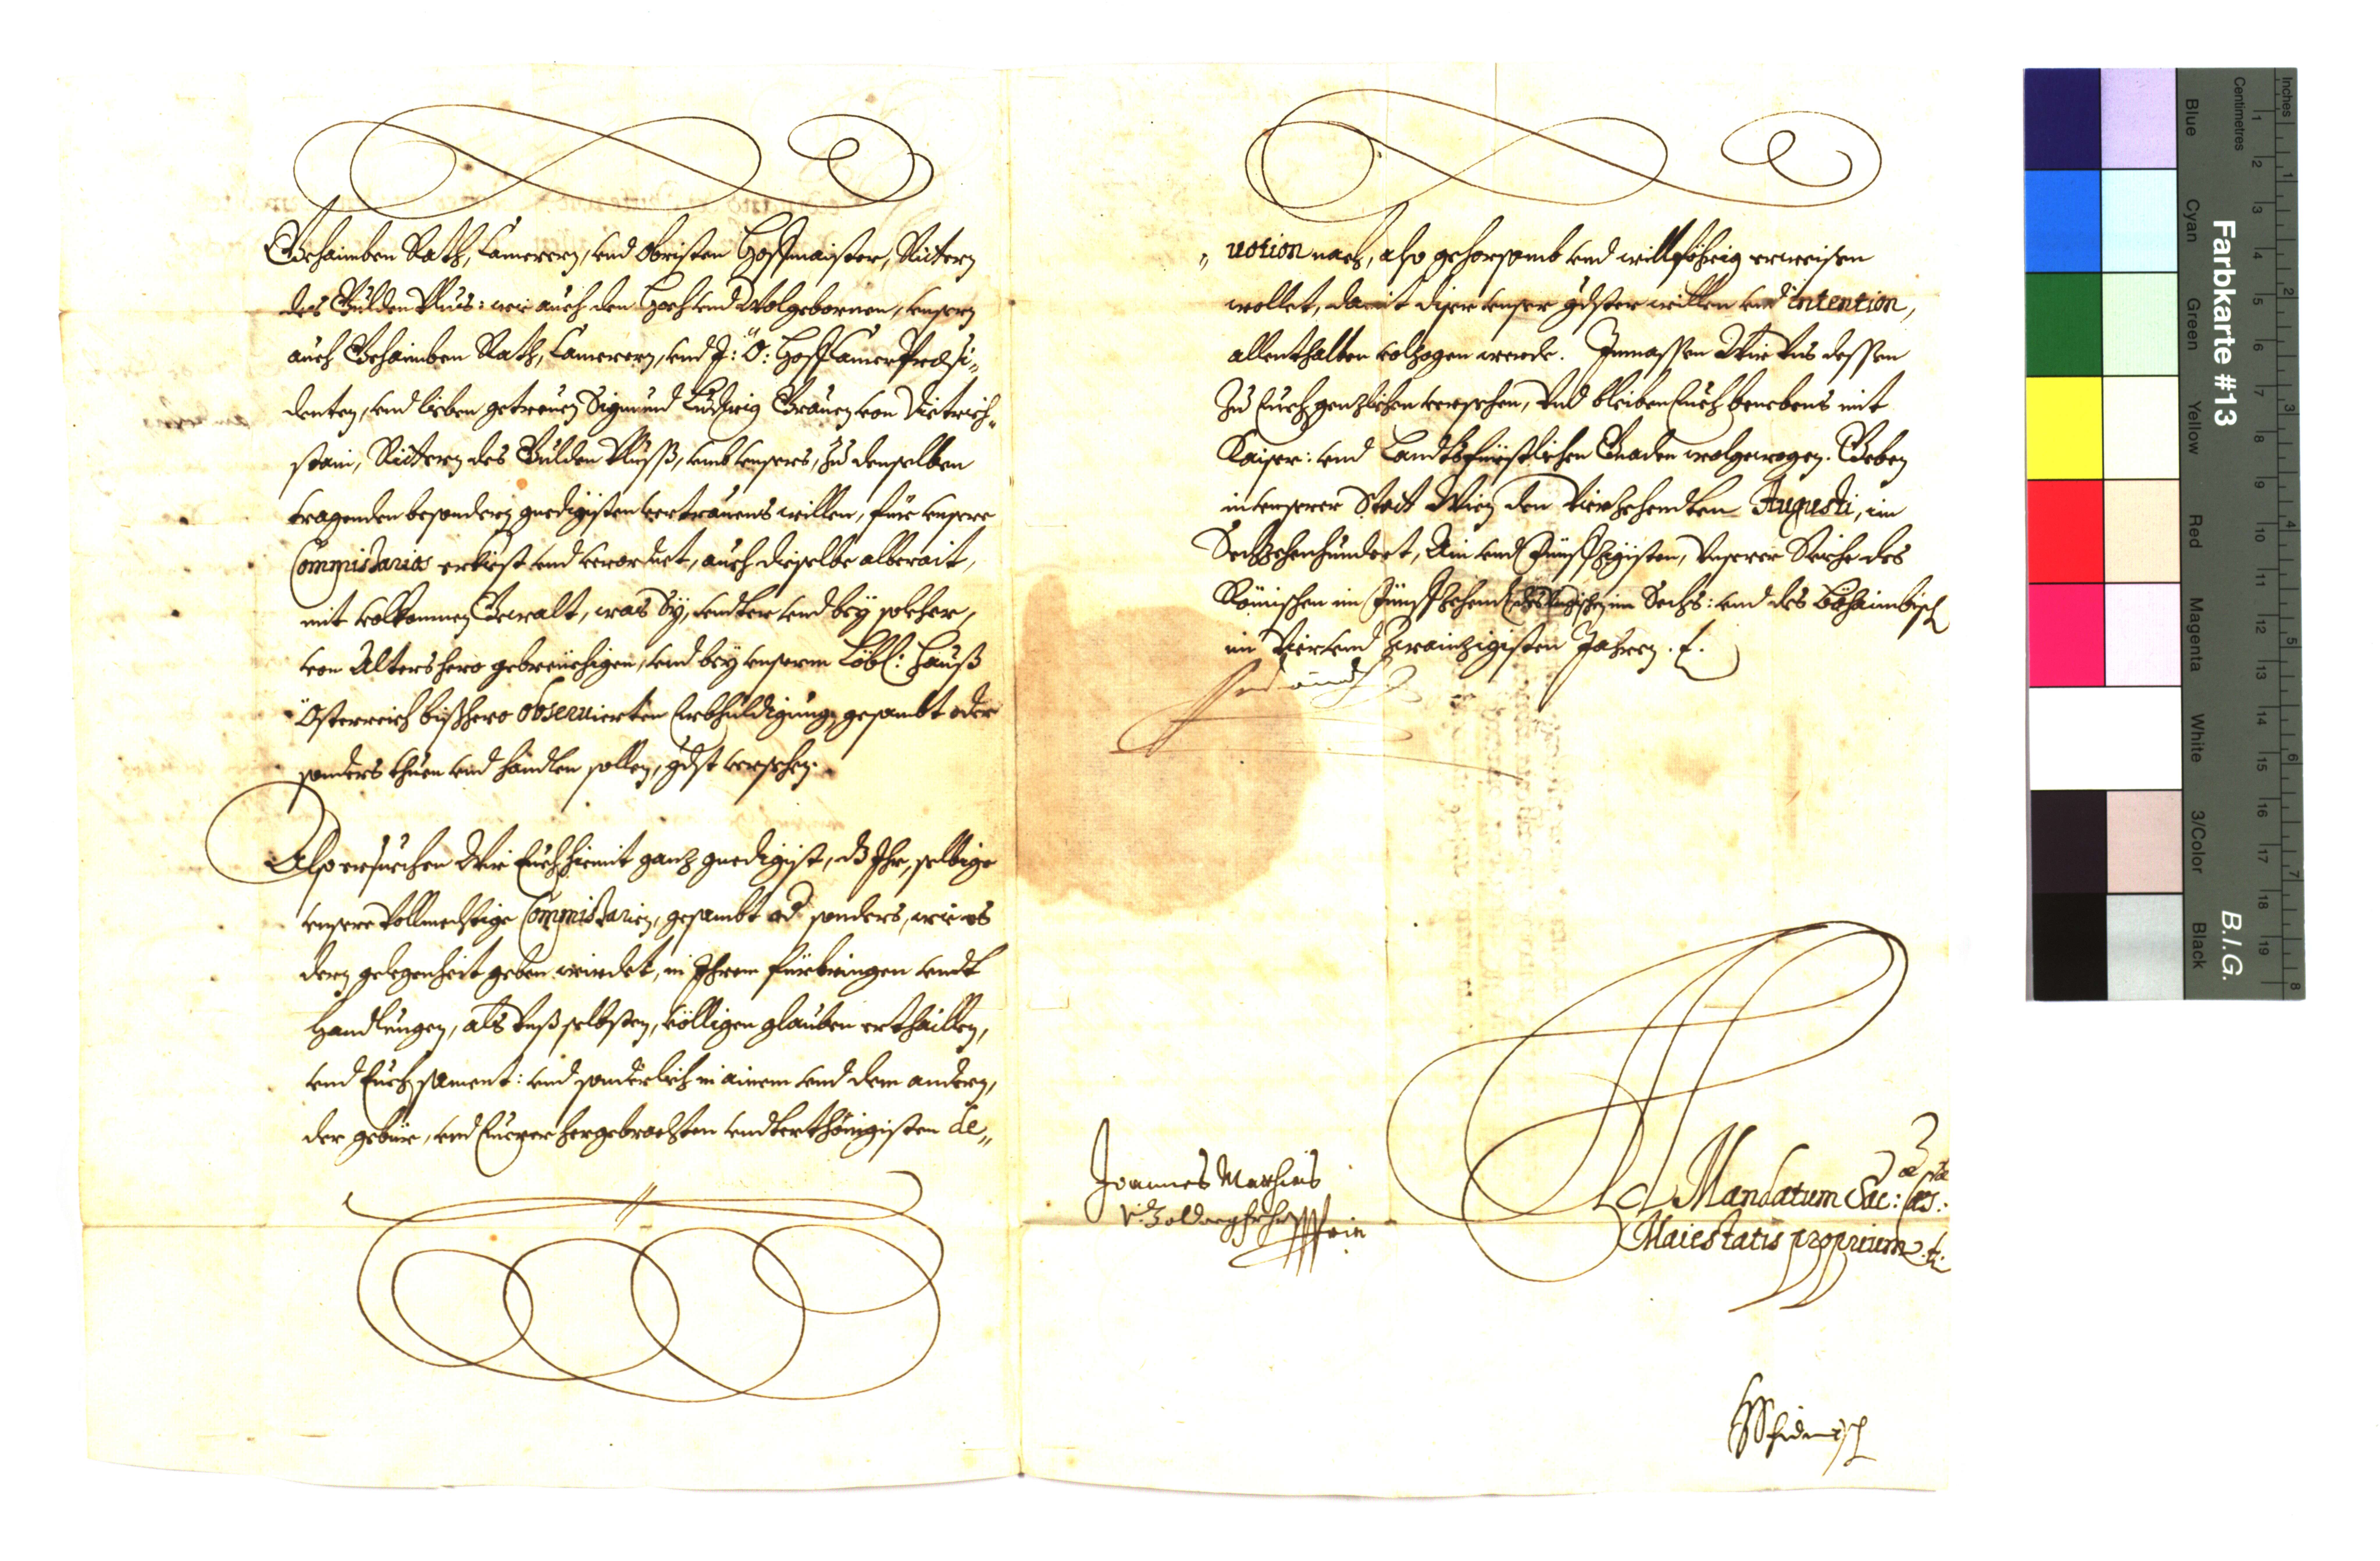 Gehaimben Rath, Camerern, vnd Obristen Hoffmaister, Rittern
des Gulden Vlus: wie auch den Hoch vnd Wolgebornen, vnsern
auch Gehaimben Rath, Camerern, vnd I: Ö: Hoff Camer Præsi„
denten, vnd lieben getreuen Sigmund Ludwig Grauen von Dietrich„
stain, Rittern des Gulden Vluß, vmb vnsers, zu denselben
tragenden besondern gnedigisten vertrauens willen, für vnsere
Commissarios erkiest vnd verordnet, auch dieselbe alberait,
mit volkomnen Gewalt, was Sy, vndter vnd bey solcher,
von Alters hero gebreüchigen, vnd bey vnserm Löbl: Hauß
Österreich bißhero obseruierten Erbhuldigung, gesambt oder
sonders thuen vnd handlen sollen, gdst versehen.
Also ersuechen Wir Euch hiemit ganz gnedigist, dz Ihr, selbige
vnsere Vollmechtige Commissarien, gesambt od sonders, wie es
dern gelegenheit geben wirdet, in Ihrem fürbringen vndt
Handlungen, als Vnß selbsten, völligen glauben erthaillen,
vnd Euch sament: vnd sonderlich in ainem vnd dem andern,
der gebür, vnd Euerer hergebrachten vndterthönigisten de„
„ uotion nach, also gehorsamb vnd willföhrig erweisen
wollet, damit diser vnser gdster willen vnd intention,
allenthalben volzogen werde. Inmassen Wir Vns dessen
Zu Euch genzlichen versehen, Vnd bleiben Euch benebens mit
Kaiser: vnd Landtsfürstlichen Gnaden wolgewogen. Geben
in vnserer Statt Wien den Vierzehendten Augusti, im
Sechzehenhundert, Ain vnd Fünffzigisten, Vnserer Reiche des
Römischen im Fünffzehend des Hungrischen im Sechs: vnd des Böhaimbisch
im Vier vnd zwainzigisten Jahren.
Ferdinandt
Joannes Mathias
Ad Mandatum Sac: Cæs:
Maiestatis proprium
Farbkarte #13
B.I.G.
Inches
Centimetres
1 2 3 4 5 6 7 8
1 2 3 4 5 6 7 8 9 10 11 12 13 14 15 16 17 18 19
Blue
Cyan
Green
Yellow
Red
Magenta
White
3/Color
Black